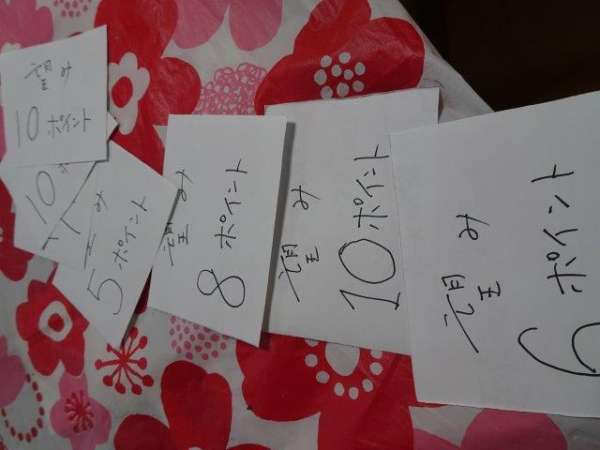 望み
10ポイント
10
望み
5ポイント
望み
8ポイント
望み
10ポイント
望み
6ポイント